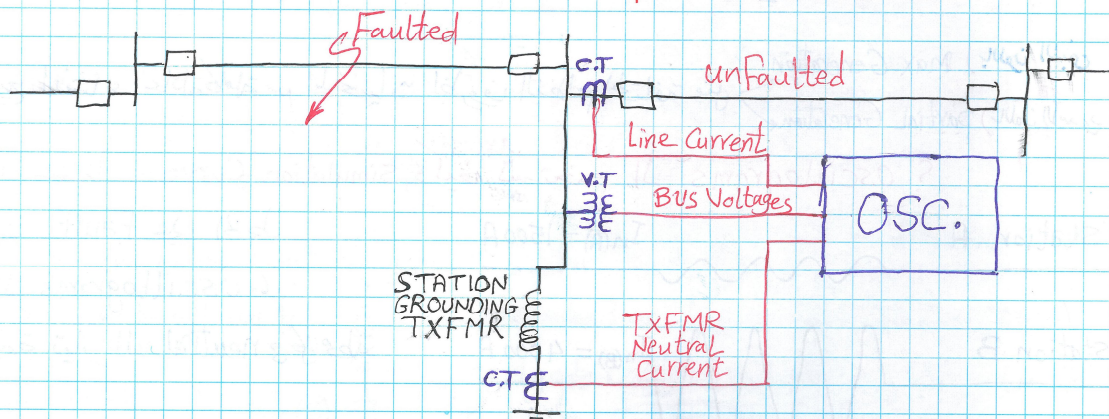 Faulted
C.T
unFaulted
Line Current
V.T
Bus Voltages
OSC.
STATION
GROUNDING
TXFMR
TXFMR
Neutral
Current
C.T